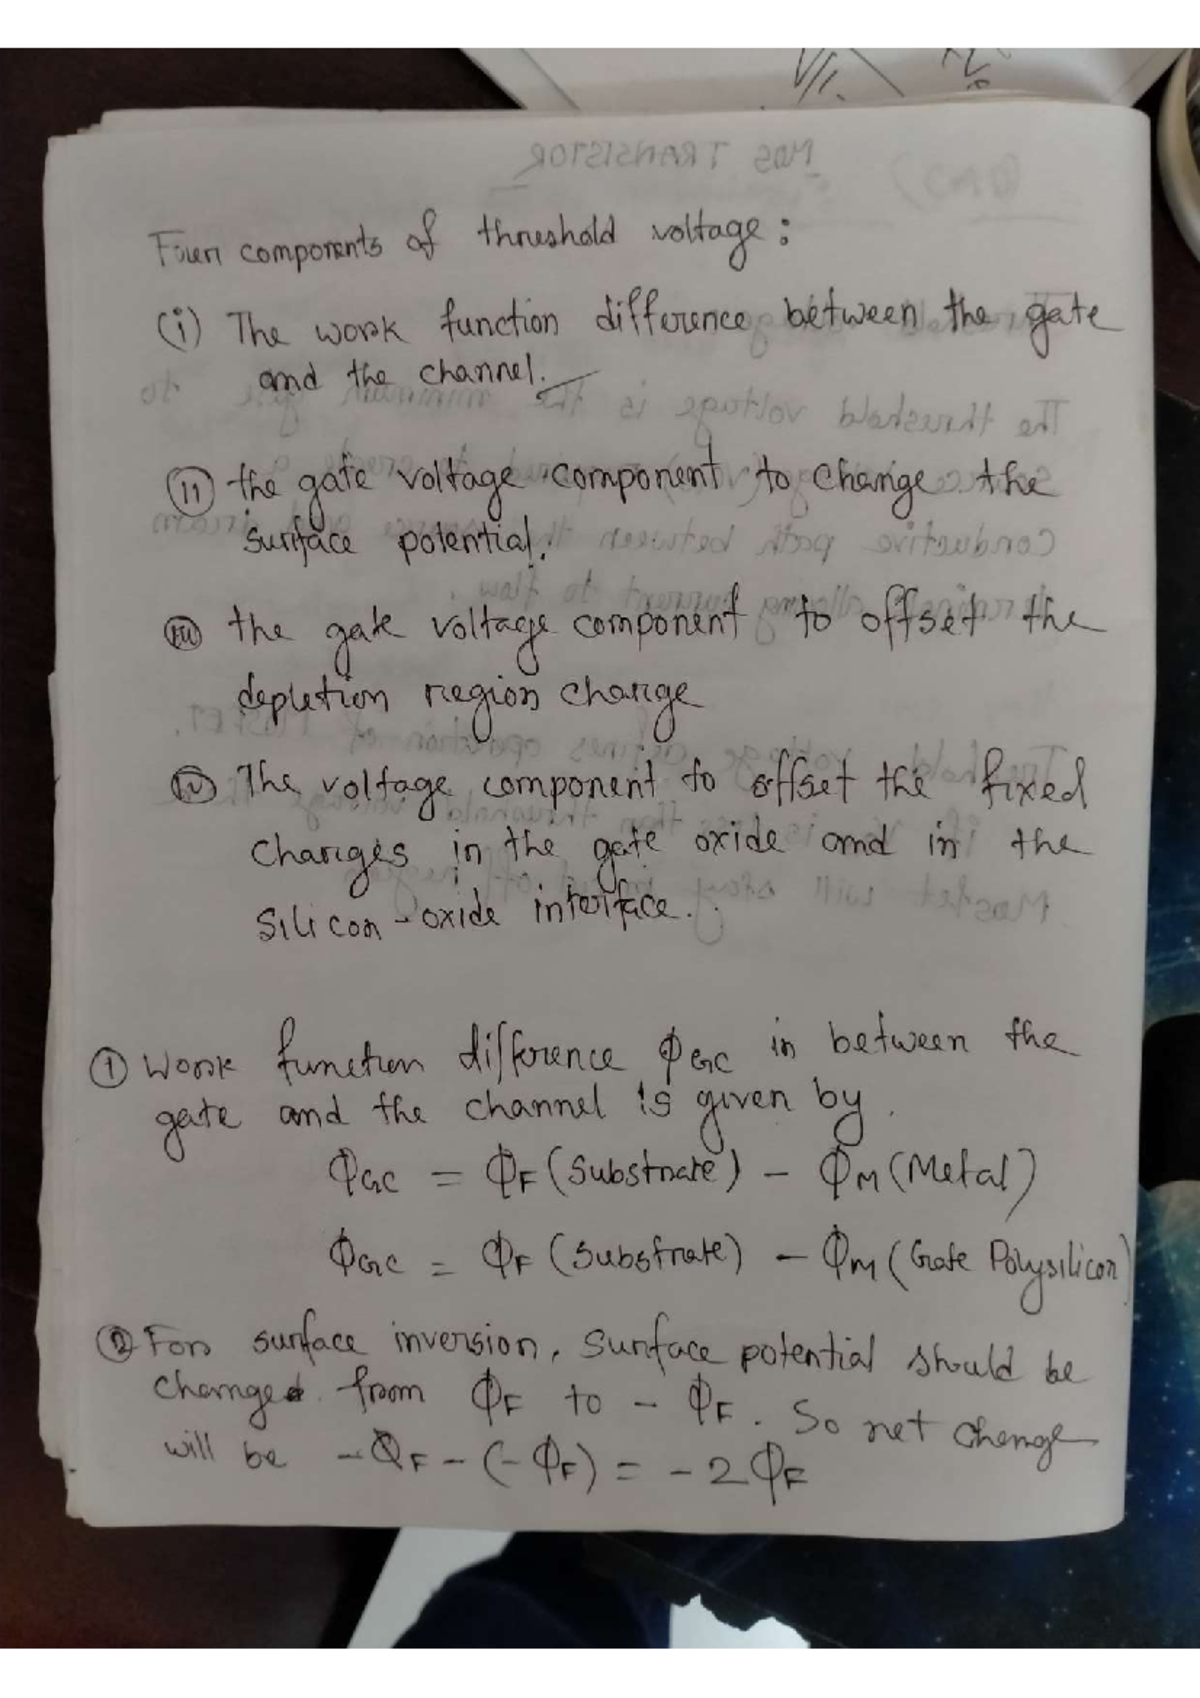 Four components of threshold voltage:
(i) The work function difference between the gate
and the channel.
(ii) the gate voltage component to change the
surface potential.
(iii) the gate voltage component to offset the
depletion region charge
(iv) The voltage component to offset the fixed
charges in the gate oxide and in the
silicon-oxide interface.
① Work function difference ϕGC in between the
gate and the channel is given by.
ϕGC = ϕF (Substrate) - ϕM (Metal)
ϕGC = ϕF (Substrate) - ϕM (Gate Polysilicon)
② For surface inversion, surface potential should be
changed from ϕF to - ϕF. So net change
will be -ϕF - (-ϕF) = -2ϕF
MOS TRANSISTOR
The threshold voltage is the minimum to
Conductive path between
current to flow.